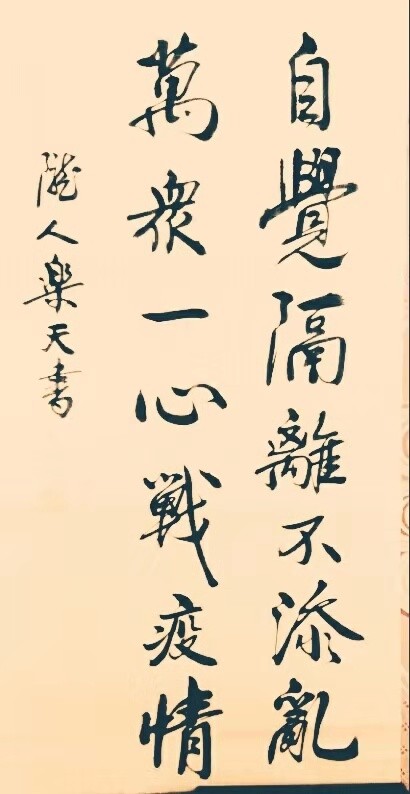 自覺隔離不添亂
萬衆一心戰疫情
隴人樂天書